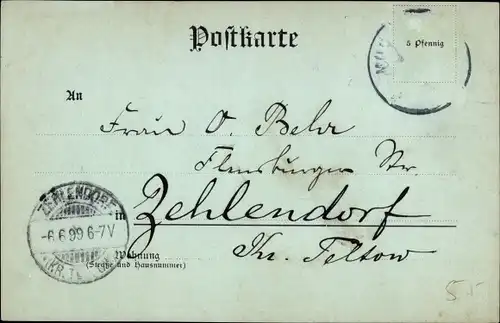 Postkarte
5 Pfennig
An
Frau O. Behr
Flensburger Str.
in Zehlendorf
Kr. Teltow
Wohnung
(Straße und Hausnummer)
ZEHLENDORF
-6.6.99 6-7V
5.-